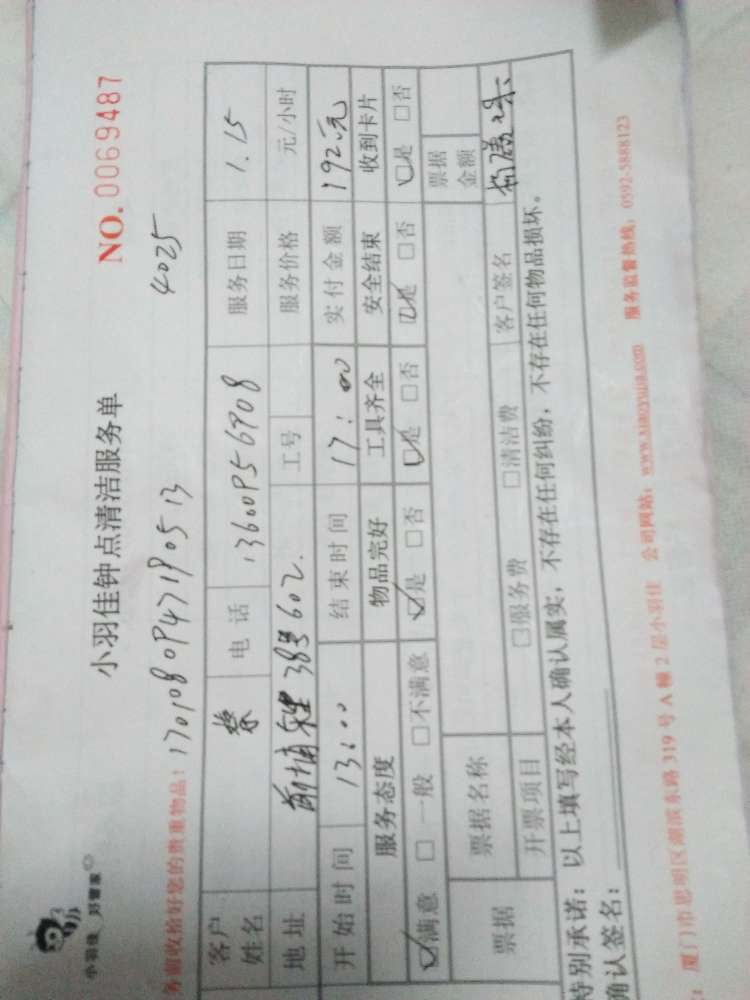 小羽佳 好管家
小羽佳钟点清洁服务单
NO. 0069487
务前收拾好您的贵重物品! 17010809471905 13 4025
客户姓名 蔡 电话 13600956908 服务日期 1.15
地址 前埔 38号602. 工号 服务价格 元/小时
开始时间 13:00 结束时间 17:00 实付金额 192元
服务态度 物品完好 工具齐全 安全结束 收到卡片
☑满意 □一般 □不满意 ☑是 □否 ☑是 □否 ☑是 □否 ☑是 □否
票据 票据名称 票据金额
开票项目 □服务费 □清洁费 客户签名
特别承诺:以上填写经本人确认属实,不存在任何纠纷,不存在任何物品损坏。
确认签名:
:厦门市思明区湖滨东路319号A幢2层小羽佳 公司网站:www.xiaoyujia.com 服务监督热线:0592-5888123